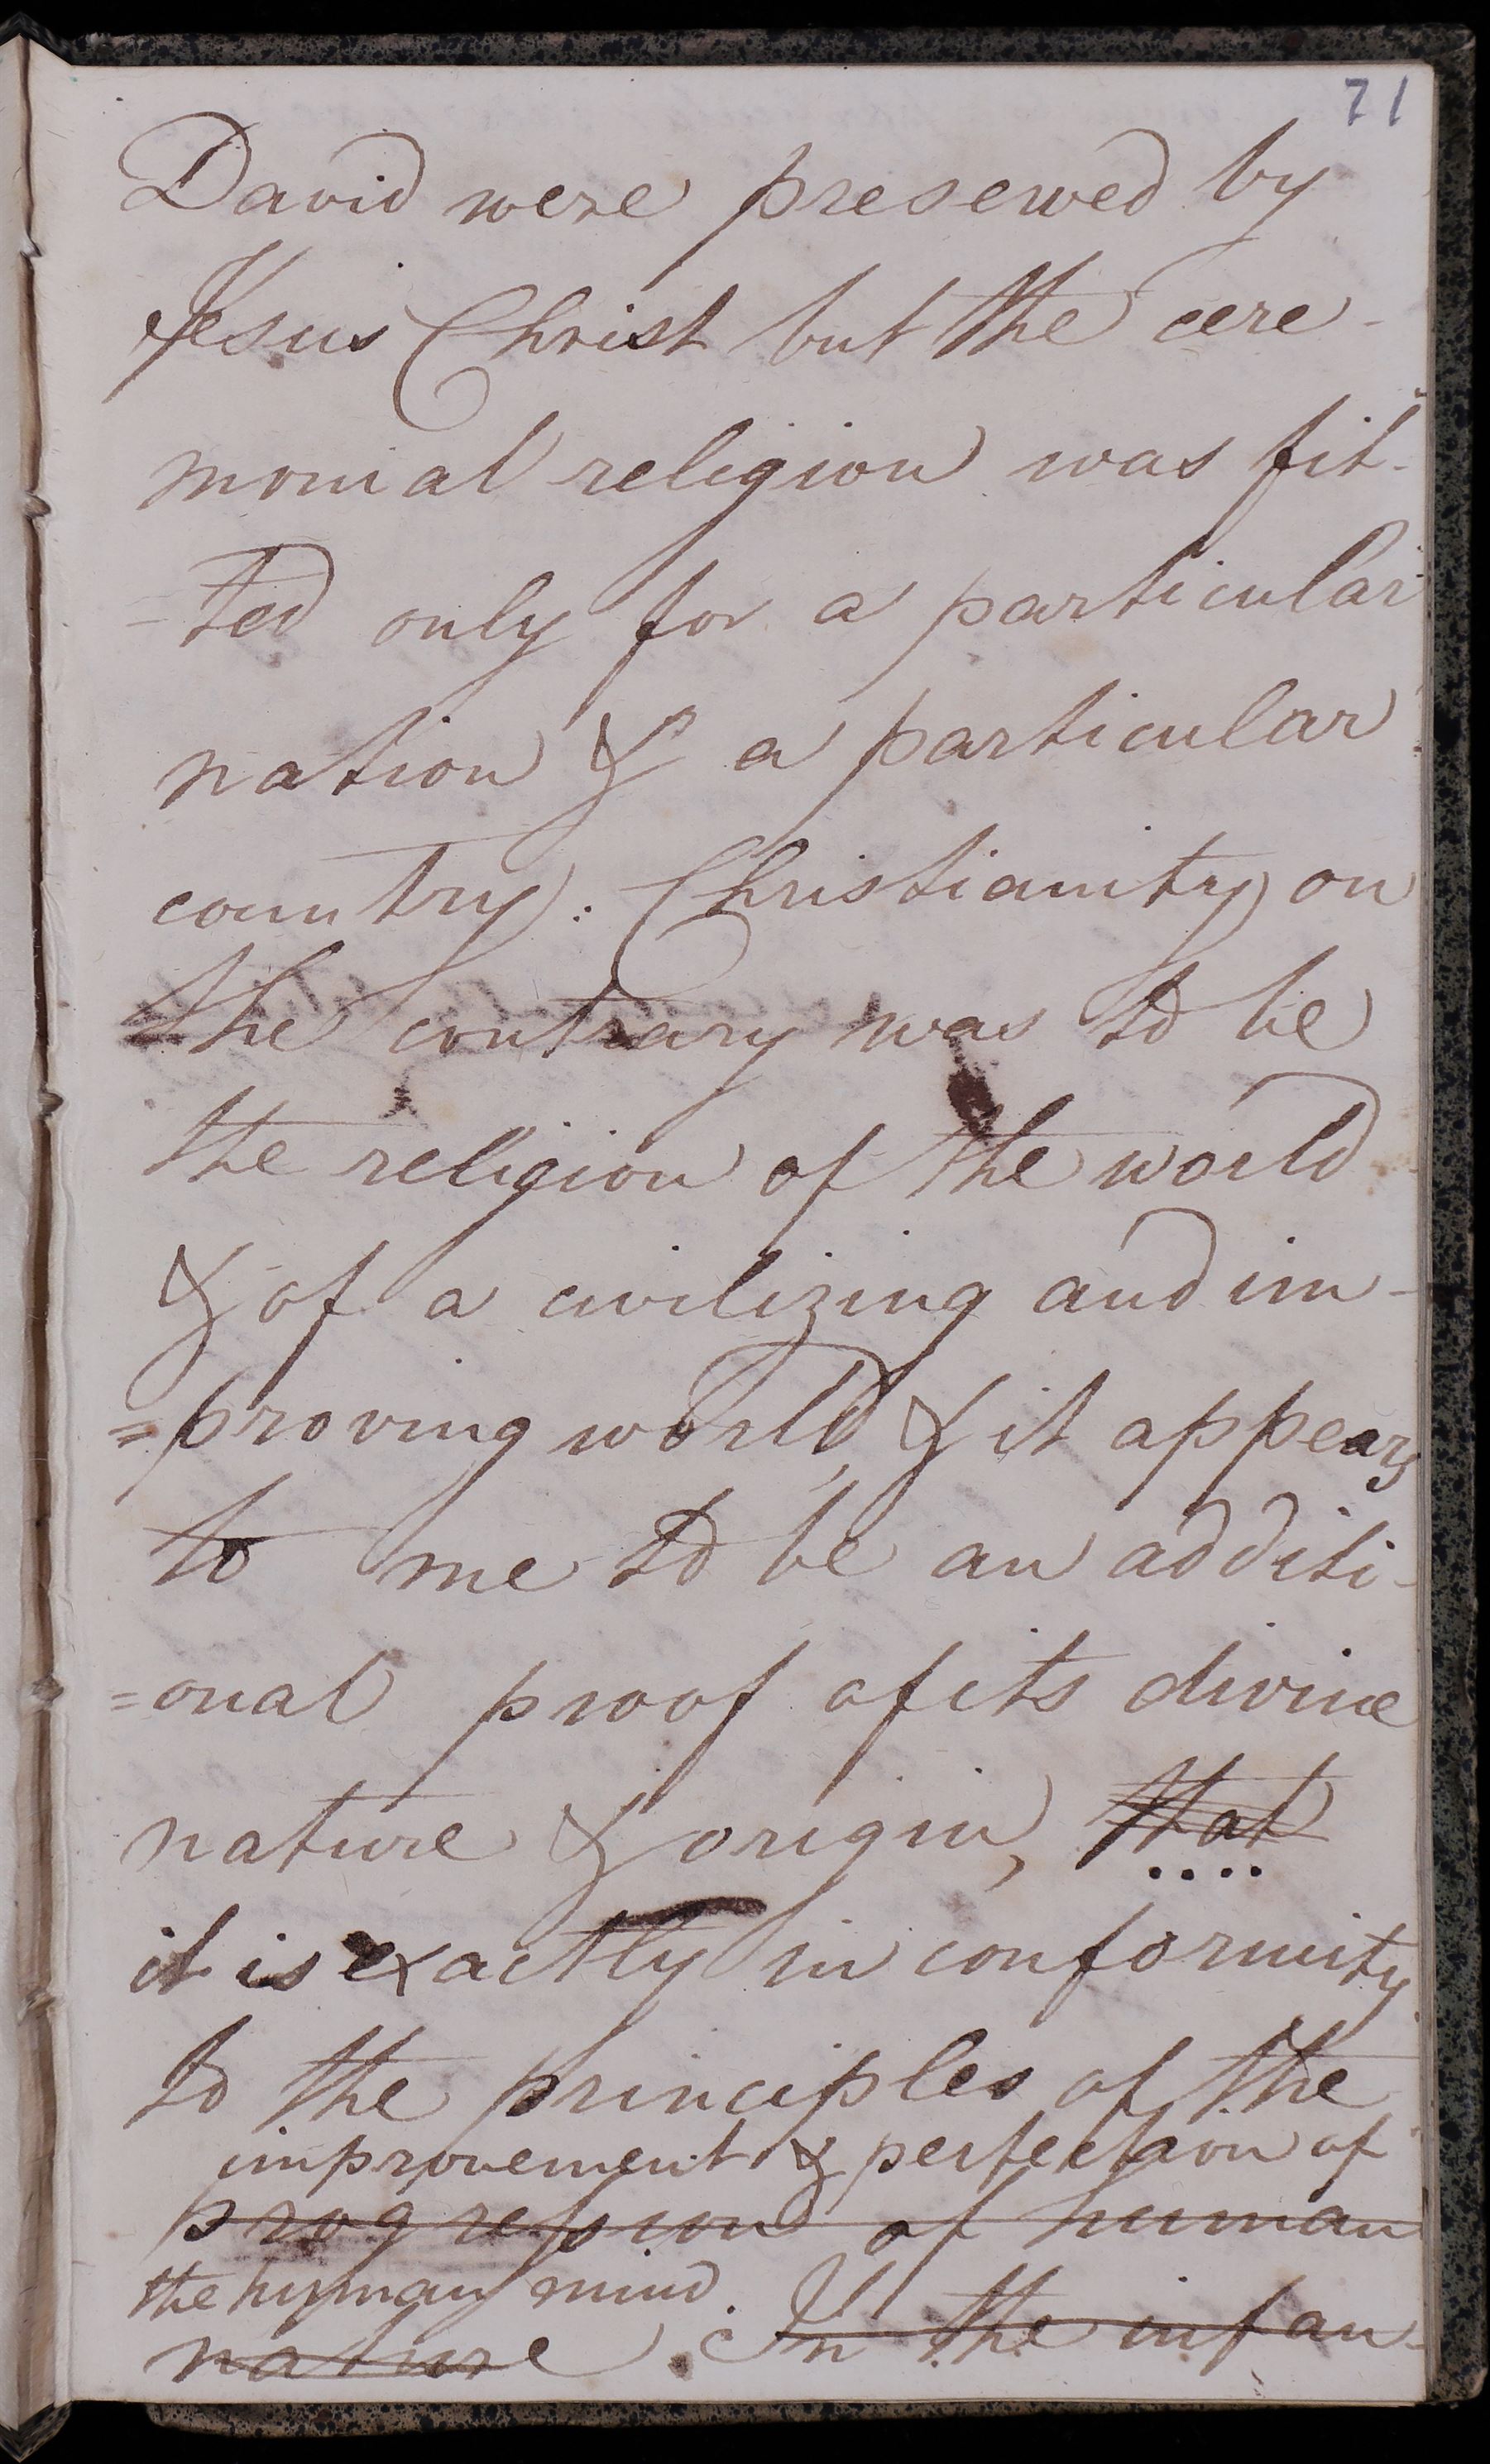 71
David were preserved by
Jesus Christ but the cere-
monial religion was fit-
-ted only for a particular
nation & a particular
country: Christianity on
the contrary was to be
the religion of the world
& of a civilizing and im-
=proving world, & it appears
to me to be an additi-
=onal proof of its divine
nature & origin, that
it is exactly in conformity
to the principles of the
improvement & perfection of
progression of human
the human mind.
nature. In the infan-